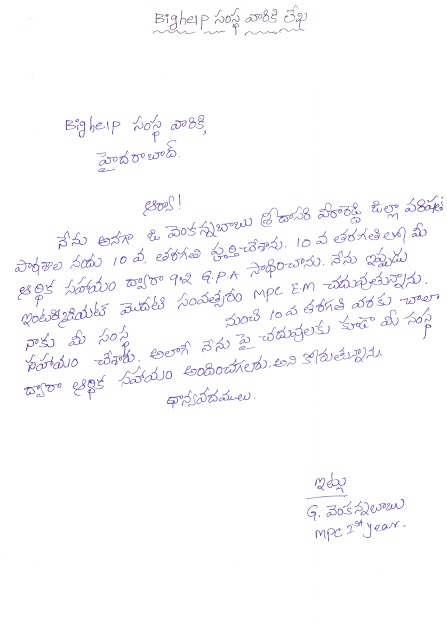 Bighelp సంస్థ వారికి లేఖ
Bighelp సంస్థ వారికి,
హైదరాబాద్.
ఆర్యా!
నేను అనగా జి వెంకన్నబాబు శ్రీ దాసరి వీరారెడ్డి జిల్లా పరిషత్
పాఠశాల నందు 10 వ. తరగతి పూర్తిచేశాను. 10 వ తరగతిలో మీ
ఆర్థిక సహాయం ద్వారా G.P.A సాధించాను. నేను ఇప్పుడు
ఇంటర్మీడియట్ మొదటి సంవత్సరం MPC E.M చదువుతున్నాను.
నాకు మీ సంస్థ నుంచి 10 వ తరగతి వరకు చాలా
సహాయం చేశారు. అలాగే నేను పై చదువులకు కూడా మీ సంస్థ
ద్వారా ఆర్థిక సహాయం అందించగలరు. అని కోరుతున్నాను.
ధాన్యవాదములు.
ఇట్లు
G. వెంకన్నబాబు
MPC 1st year.